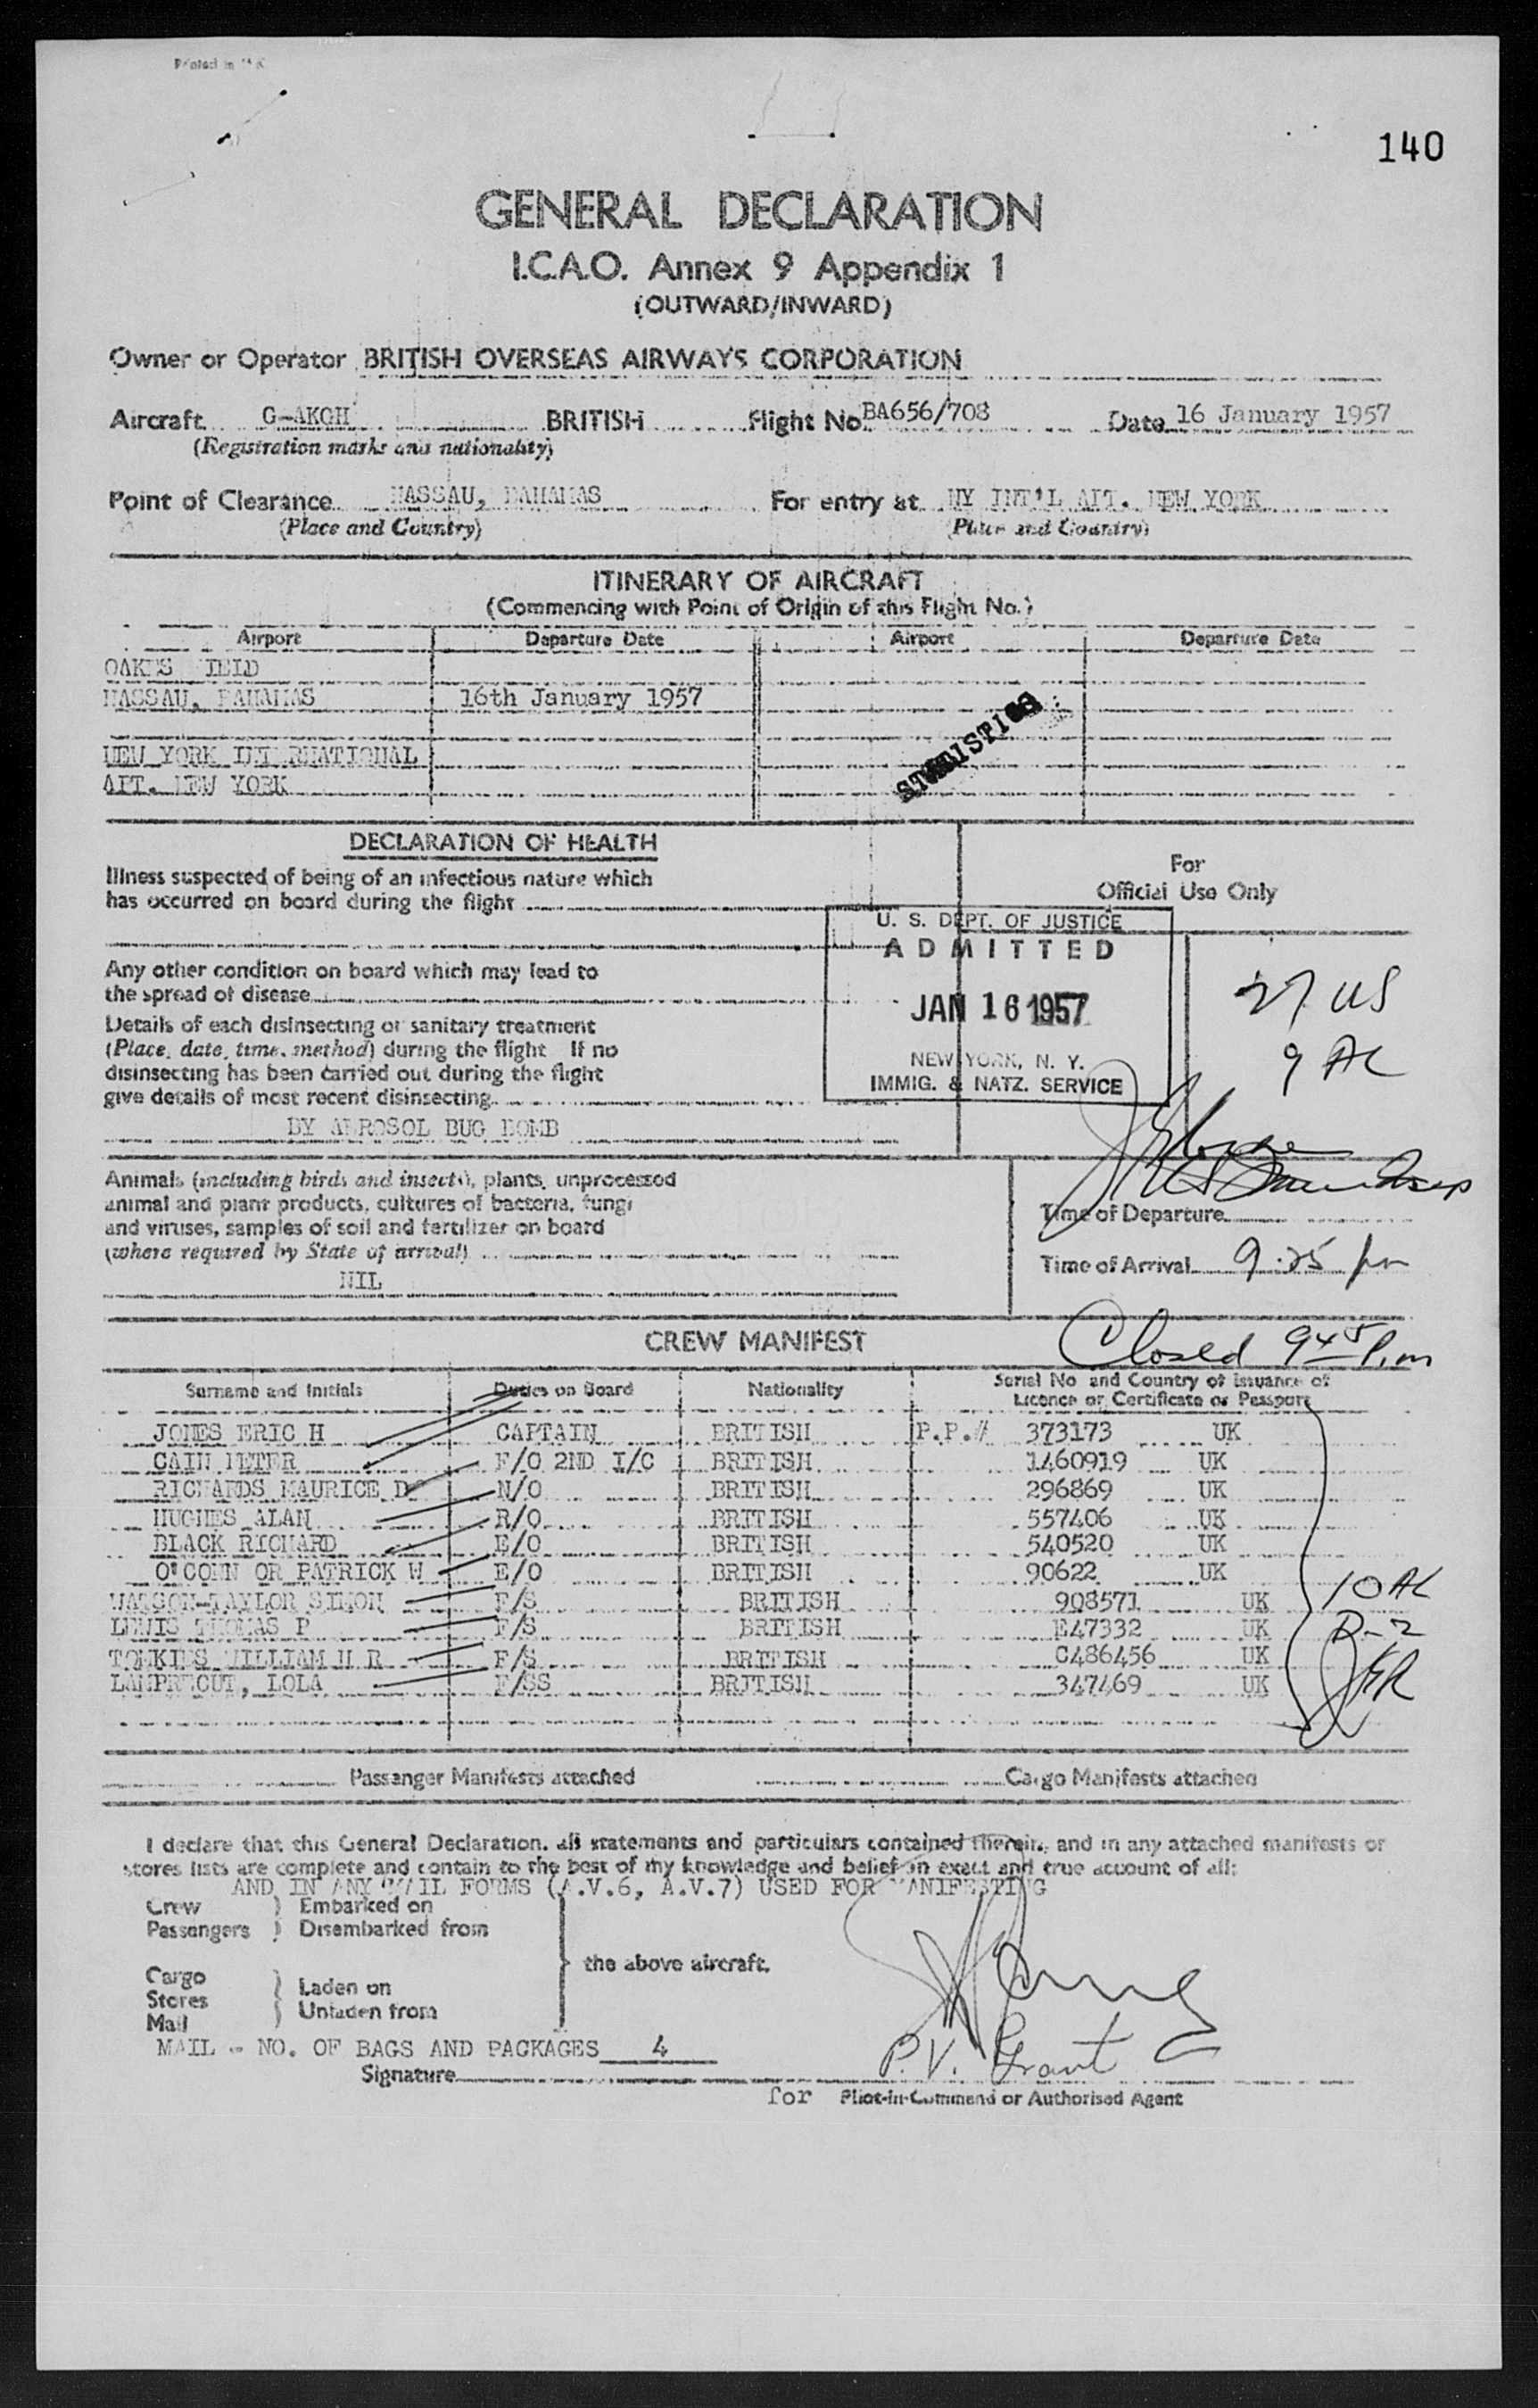 Printed in
140
GENERAL DECLARATION
I.C.A.O. Annex 9 Appendix 1
(OUTWARD/INWARD)
Owner or Operator BRITISH OVERSEAS AIRWAYS CORPORATION
Aircraft G-AKGH BRITISH Flight No. BA656/708 Date 16 January 1957
(Registration marks and nationality)
Point of Clearance NASSAU, BAHAMAS For entry at NY INT'L AIT. NEW YORK
(Place and Country) (Place and Country)
ITINERARY OF AIRCRAFT
(Commencing with Point of Origin of this Flight No.)
Airport Departure Date Airport Departure Date
OAKES FIELD
NASSAU, BAHAMAS 16th January 1957
STATISTICS
NEW YORK INTERNATIONAL
AIT. NEW YORK
DECLARATION OF HEALTH
For
Official Use Only
Illness suspected of being of an infectious nature which
has occurred on board during the flight
U. S. DEPT. OF JUSTICE
ADMITTED
JAN 16 1957
NEW YORK, N. Y.
IMMIG. & NATZ. SERVICE
27 US
9 AL
Any other condition on board which may lead to
the spread of disease
Details of each disinsecting or sanitary treatment
(Place, date, time, method) during the flight If no
disinsecting has been carried out during the flight
give details of most recent disinsecting
BY AEROSOL BUG BOMB
Animals (including birds and insects), plants, unprocessed
animal and plant products, cultures of bacteria, fungi
and viruses, samples of soil and fertilizer on board
(where required by State of arrival)
NIL
Time of Departure
Time of Arrival 9:25 pm
Closed 945 P.m
CREW MANIFEST
Surname and Initials Duties on Board Nationality Serial No and Country of issuance of
Licence or Certificate or Passport
JONES ERIC H CAPTAIN BRITISH P.P.# 373173 UK
CAIN PETER F/O 2ND I/C BRITISH 1460919 UK
RICHARDS MAURICE D N/O BRITISH 296869 UK
HUGHES ALAN R/O BRITISH 557406 UK
BLACK RICHARD E/O BRITISH 540520 UK
O'CONN OR PATRICK W E/O BRITISH 90622 UK
WATSON-TAYLOR SIMON F/S BRITISH 908571 UK
LEWIS THOMAS P F/S BRITISH E47332 UK
TOMKINS WILLIAM H R F/S BRITISH C486456 UK
LOLA F/SS BRITISH 347469 UK
10 AL
D-2
Passenger Manifests attached Cargo Manifests attached
I declare that this General Declaration, all statements and particulars contained therein, and in any attached manifests or
stores lists are complete and contain to the best of my knowledge and belief an exact and true account of all:
AND IN ANY MAIL FORMS (A.V.6, A.V.7) USED FOR MANIFESTING
Crew } Embarked on
Passengers } Disembarked from
the above aircraft.
Cargo } Laden on
Stores
Mail } Unladen from
MAIL - NO. OF BAGS AND PACKAGES 4
P.V. Grant
Signature
for Pilot-in-Command or Authorised Agent